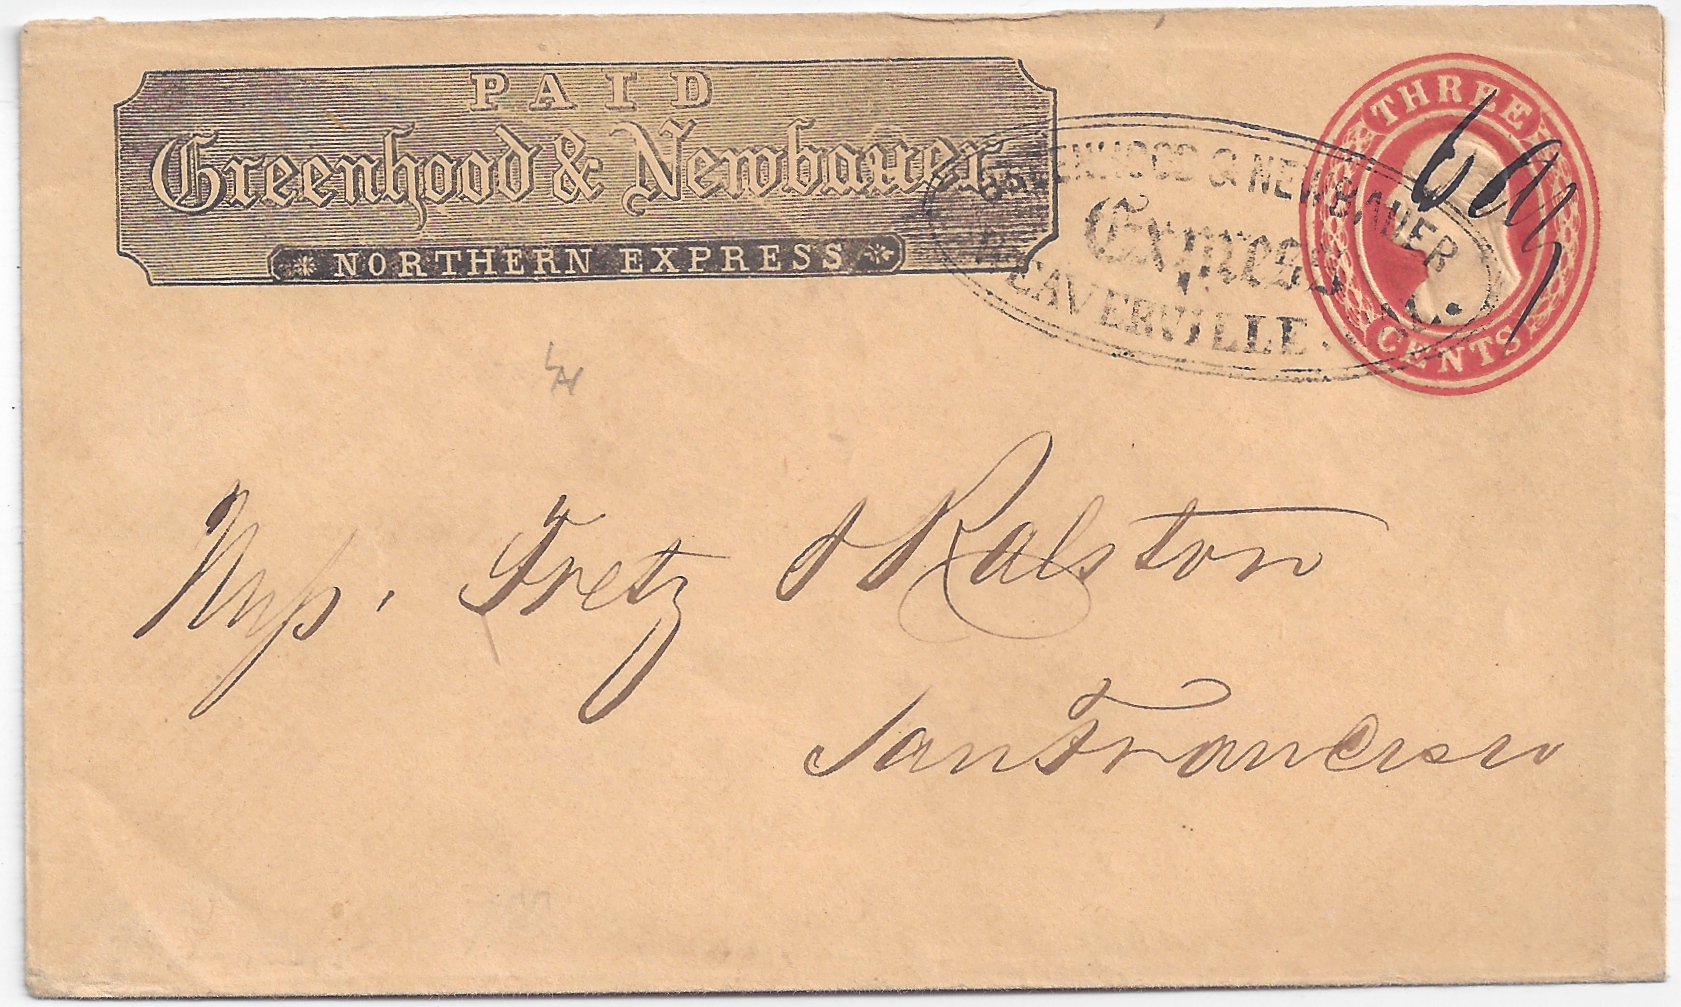 PAID
Greenhood & Newbauer
NORTHERN EXPRESS
GREENHOOD & NEWBAUER
Express
WEAVERVILLE CAL.
THREE
CENTS
Messs. Fretz & Ralston
San Francisco